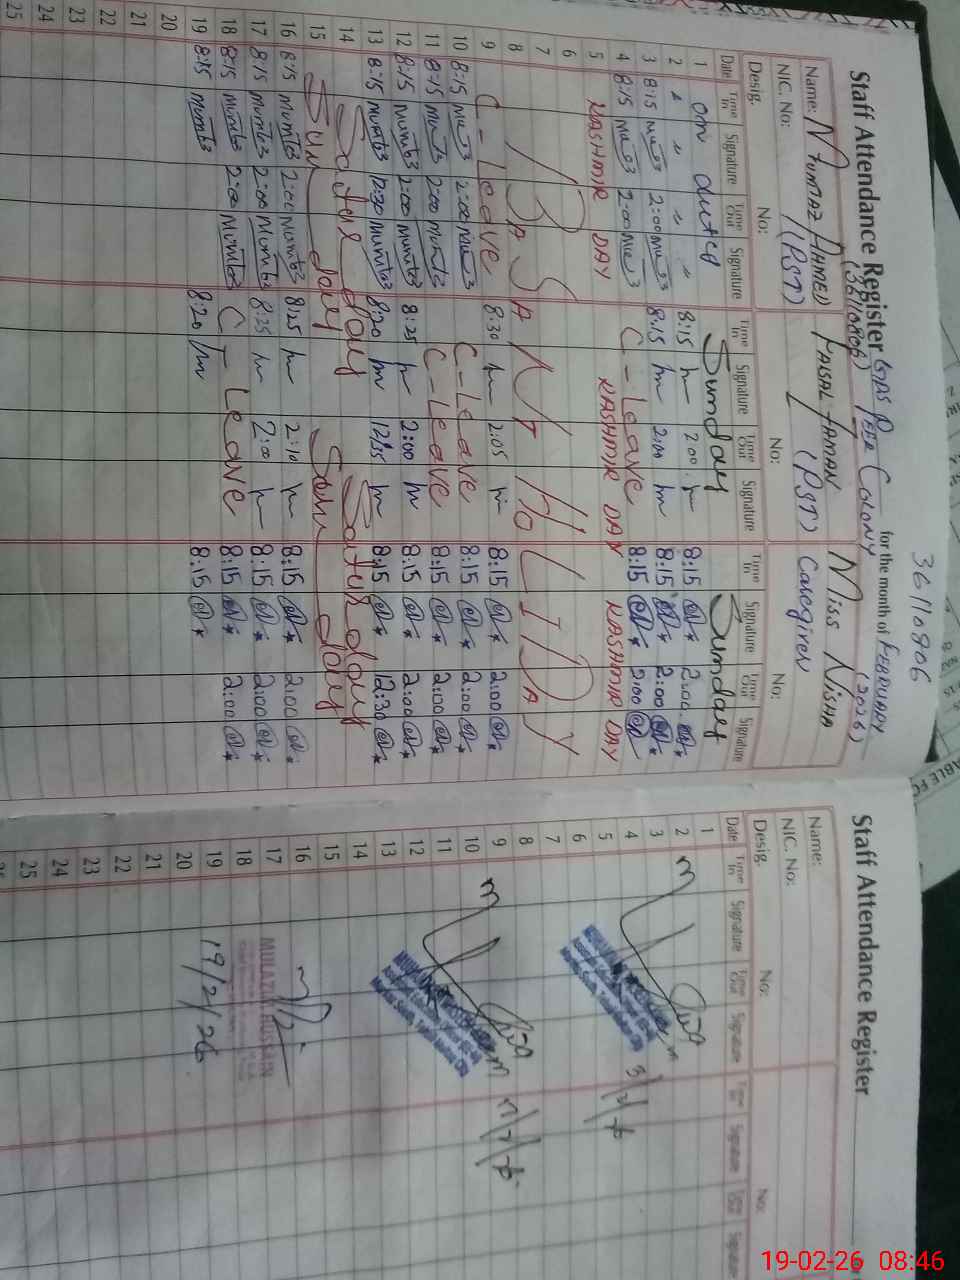 36110806
Staff Attendance Register GBPS PEER COLONY for the month of FEBRUARY (2026)
(36110806)
Name: MUMTAZ AHMED FAISAL ZAMAN MISS NISHA
NIC. No: (PST) (PST) Caregiver
Desig. No: No: No:
Date Time In Signature Time Out Signature Time In Signature Time Out Signature Time In Signature Time Out Signature
1 on duted Sunday Sunday
2 " " " " 8:15 2:00 8:15 2:00
3 8:15 2:00 8:15 2:00 8:15 2:00
4 8:15 2:00 C-Leave 8:15 2:00
5 KASHMIR DAY KASHMIR DAY KASHMIR DAY
6
7 BASANT HOLIDAY
8
9 C-Leave 8:30 2:05 8:15 2:00
10 8:15 2:00 C-Leave 8:15 2:00
11 8:15 2:00 C-Leave 8:15 2:00
12 8:15 Mumt3 2:00 Mumt3 8:25 2:00 8:15 2:00
13 8:15 Mumt3 12:30 Mumt3 8:20 12:35 8:15 12:30
14 Saturday Saturday
15 Sunday Sunday
16 8:15 Mumt3 2:00 Mumt3 8:25 2:10 8:15 2:00
17 8:15 Mumt3 2:00 Mumt3 8:25 2:00 8:15 2:00
18 8:15 Mumt3 2:00 Mumt3 C-Leave 8:15 2:00
19 8:15 Mumt3 8:20 8:15
20
21
22
23
24
25
Staff Attendance Register
Name:
NIC. No:
Desig. No: No:
Date Time In Signature Time Out Signature Time In Signature Time Out
1
2
3
4
5
6
7
8
9
10
11
12
13
14
15
16
17 MULAZIM HUSSAIN
18
19 19/2/26
20
21
22
23
24
25
ABLE FC
19-02-26 08:46